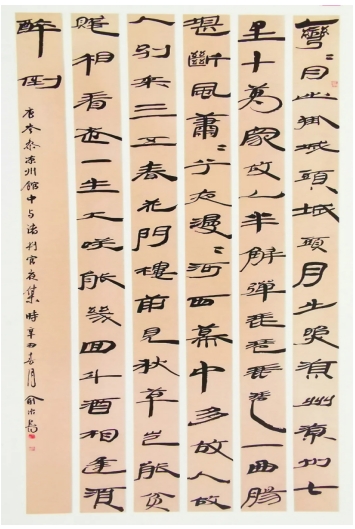 彎〻月出掛城頭城頭月出照涼州涼州七
里十萬家故人半解彈琵琶琵琶一曲腸
堪斷風蕭〻兮夜漫〻河西幕中多故人故
人別來三五春花門樓前見秋草豈能貧
賤相看老一生大笑能幾回斗酒相逢須
醉倒
唐岑參涼州館中与諸判官夜集時辛丑春月